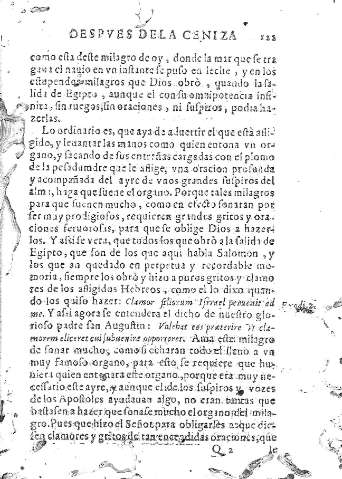 DESPVES DE LA CENIZA 122
como esta deste milagro de oy, donde la mar que se tra
gaua el nauio en vn instante se puso en leche, y en los
estupendos milagros que Dios obrò, quando la sa-
lida de Egipto, aunque el con su omnipotencia infi-
nita, sin ruegos, sin oraciones, ni suspiros, podia ha-
zerlas.
Lo ordinario es, que aya de aduertir el que està afli-
gido, y leuantar las manos como quien entona vn or-
gano, y sacando de sus entrañas cargadas con el plomo
de la pesadumbre que le aflige, vna oracion profunda
y acompañada del ayre de vnos grandes suspiros del
alma, haga que suene el organo. Porque tales milagros
para que suenen mucho, como en efecto sonaran por
ser muy prodigiosos, requieren grandes gritos y ora-
ciones feruorosas, para que se oblige Dios a hazer-
los. Y assi se vera, que todos los que obrò a la salida de
Egipto, que son de los que aqui habla Salomon, y
los que an quedado en perpetua y recordable me-
moria, siempre los obrò y hizo a puros gritos y clamo
res de los afligidos Hebreos, como el lo dixo quan-
do los quiso hazer: Clamor filiorum Israel peruenit ad
me. Y assi agora se entendera el dicho de nuestro glo-
rioso padre san Augustin: Volebat eos praeterire vt cla-
morem eliceret cui subuenire opporteret. Auia este milagro
de sonar mucho, como si echaran todo el lleno a vn
muy famoso organo, para esto se requiere que hu-
uiera quien entonara este organo, porque era muy ne-
cessario este ayre, y aunque el de los suspiros y vozes
de los Apostoles ayudauan algo, no eran tantas que
bastassen a hazer que sonasse mucho el organo del mila-
gro. Pues que hizo el Señor para obligarles a que die-
sen clamores y gritos de tan encendidas oraciones, que
Q 2 le
Exodi 3.